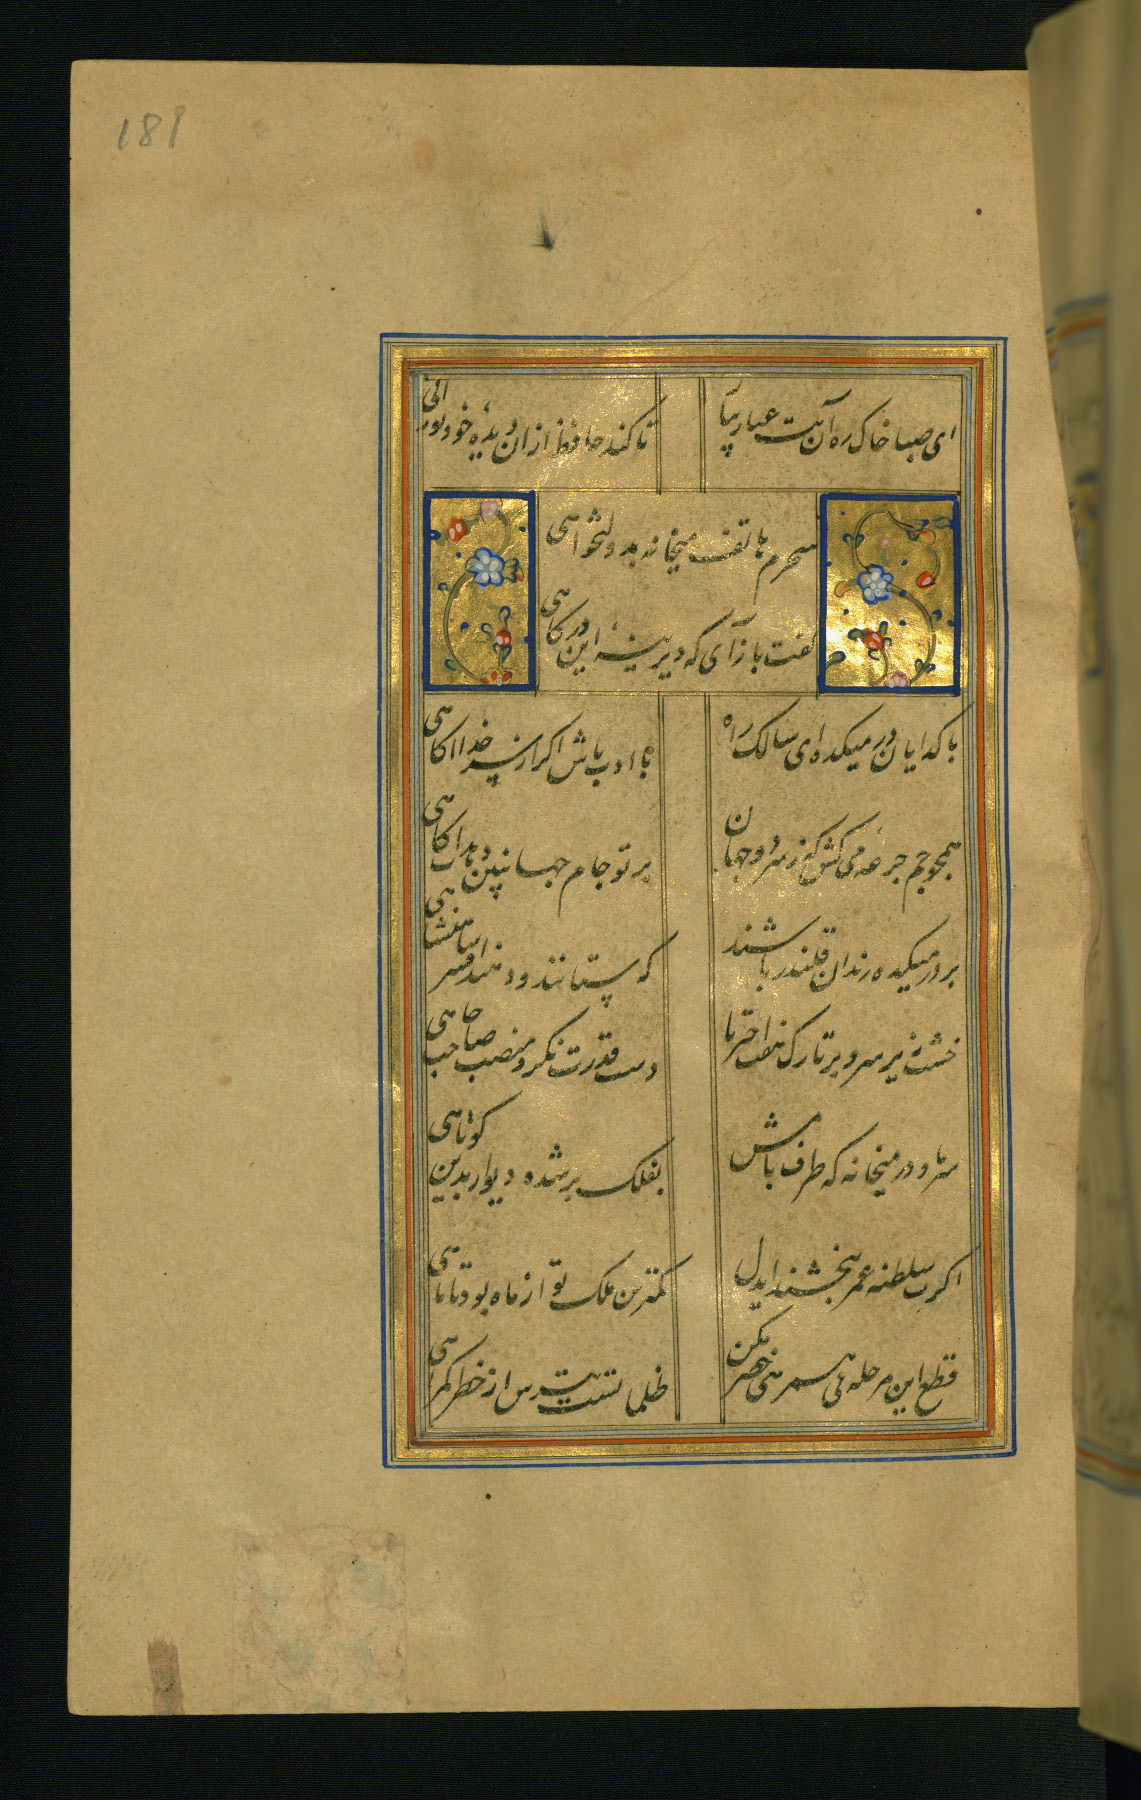 181
ای صبا خاک ره آن بت عیار بیا
تا کند حافظ ازان دیده خود
سحرم هاتف میخانه بدولتخواهی
کفت بازآی که دیرینه این درکاهی
با کدایان در میکده ای سالک راه
با ادب باش اکر از سر خدا اکاهی
همچو جم جرعه می کش که ز سر دو جهان
پرتو جام جهانبین دهدت اکاهی
بر در میکده رندان قلندر باشند
که ستانند و دهند افسر شاهنشاهی
خشت زیر سر و بر تارک هفت اختر پا
دست قدرت نکر و منصب صاحب جاهی
سر ما و در میخانه که طرف بامش
بفلک بر شده دیوار بدین کوتاهی
اکرت سلطنه عمر ببخشند ایدل
کمترین ملک تو از ماه بود تا ماهی
قطع این مرحله بی همرهی خضر مکن
ظلماتست بترس از خطر کمراهی